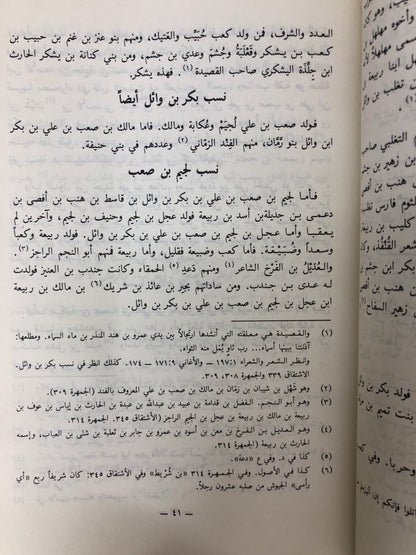 العدد والشرف، فمن ولد كعب حُبَيِّب والعَتيك، ومنهم بنو عنز بن غنم بن حبيب بن
كعب بن يشكر وثعْلبة وجُشم وعدي بن جشم، ومن بني كنانة بن يشكر الحارث
ابن حِلّذة اليشكري صاحب القصيدة (١). فهذه يشكر.
نسب بكر بن وائل أيضاً
فولد صعب بن علي لُجَيْم وعُكابة ومالك. فاما مالك بن صعب بن علي بن بكر
ابن وائل بنو زِمَّان، منهم الفِنْد الزمّاني (٢) وعددهم في بني حنيفة.
نسب لجيم بن صعب
فأما لجيم بن صعب بن علي بن بكر بن وائل بن قاسط بن هنب بن أفصى بن
دعمى بن جديلة بن أسد بن ربيعة فولد عجل بن لجيم وحنيف بن لجيم، وآخرين لم
يعقبا وأما عجل بن لجيم بن صعب بن علي بن بكر بن وائل. فولد ربيعة وكعباً
وسعداً وضُبَيْعَة. فأما كعب وضبيعة فقليل، وأما ربيعة فمنهم أبو النجم الراجز (٣).
والعُدَيْل بن الفَرْخ الشاعر (٤) ومنهم دُعَد (٥) الحمقاء وكانت جندب بن العنبر فولدت
له عدى بن جندب. ومن ساداتهم بجير بن عائذ بن شريك (٦) بن مالك بن ربيعة
ابن عجل بن لجيم بن صعب بن علي بن بكر بن وائل.
(١) والقصيدة هي معلقته التي أنشدها ارتجالاً بين يدي عمرو بن هند المنذر بن ماء السماء. ومطلعها:
آذنتنا ببَينِها أسماء... رب ثاوٍ يُملّ منه الثواء.
وانظر الشعر والشعراء ١: ١٩٧ - والأغاني ٩: ١٧١ - ١٧٤. كذلك انظر في نسب بكر بن وائل.
الاشتقاق ٣٣٩ والجمهرة ٣٠٨، ٣٠٩.
(٢) وهو شَهْل بن شيبان بن زمّان بن مالك بن صعب بن علي المعروف بالفند (الجمهرة ٣٠٩).
(٣) وهو أبو النجم. الفضل بن قدامة بن عبيد بن عبدالله بن عبدة بن الحارث بن إياس بن عوف بن
ربيعة بن مالك بن ربيعة بن عجل بن لجيم الراجز (الاشتقاق ٣٤٥. الجمهرة ٣١٤).
(٤) وهو العديل بن الفرخ بن معن بن أسود بن عمرو بن جابر بن ثعلبة بن شنى بن العباب، وإسمه
الحارث بن ربيعة (الجمهرة ٣١٤).
(٥) كذا في د. وفي ع «دعة».
(٦) كذا في الأصول. وفي الجمهرة ٣١٤ «بن شُرَيط» وفي الأشتقاق ٣٤٥: كان شريفاً ربع «أي
رأس» الجيوش من صلبه عشرون رجلاً.
— ٤١ —